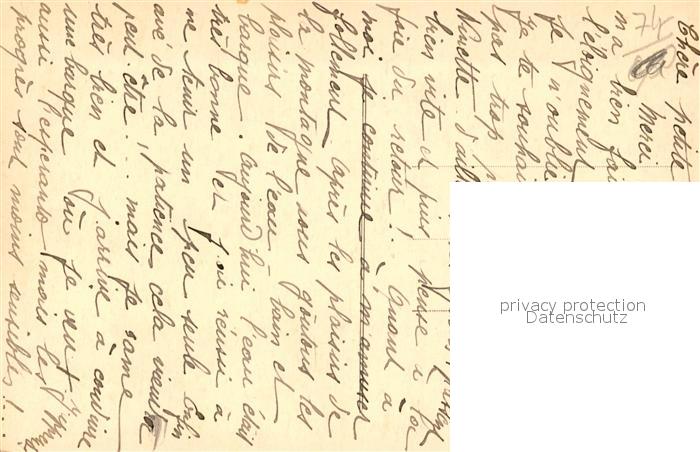 74
Chère petite
Merci
m'a bien fai
l'éloignement
Je n'oublie
Je te souhai
pas trop
Ninette d'all
bien vite et puis pense à la
joie du retour! Quant à
moi je continue à m'amuser
follement, après les plaisirs de
la montagne nous goûtons les
plaisirs de l'eau, bain et
barque. aujourd'hui l'eau était
très bonne et j'ai réussi à
me tenir un peu seule enfin
avec de la patience cela viendra
peut être... mais je rame
très bien et j'arrive à conduire
une barque où je veux. J'apprends
aussi l'esperanto mais les
progrès sont moins sensibles!..
privacy protection
Datenschutz